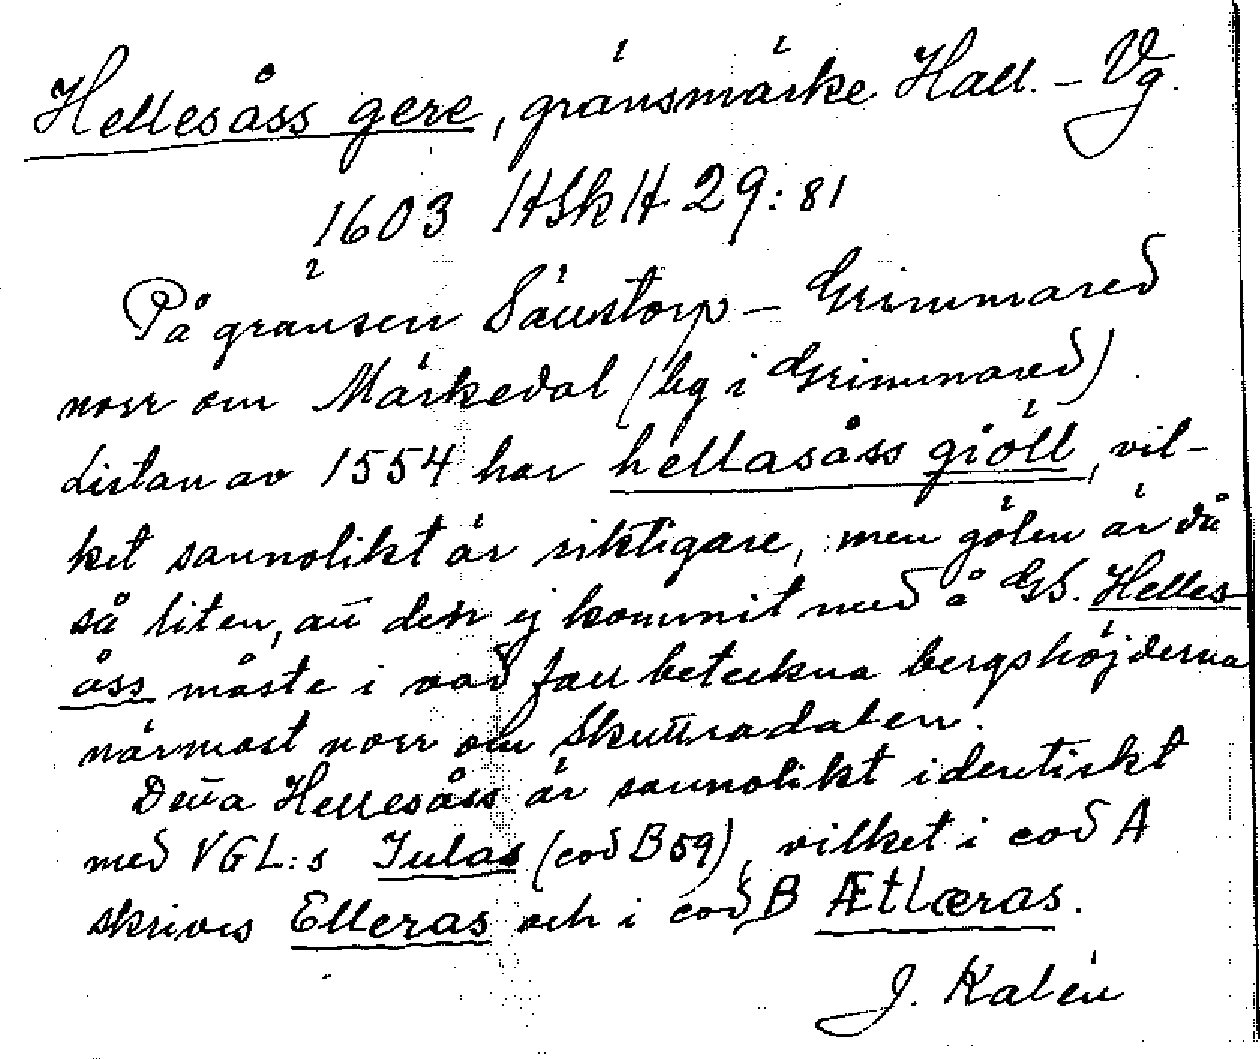 Hellesåss gere, gränsmärke Hall. – Vg.
1603 HSkH 29:81
På gränsen Säustorp – Grimmared
norr om Märkedal (bg i Grimmared)
distan av 1554 har hellasåss giöll, vil-
ket sannolikt är riktigare, men gölen är då
så liten, att den ej kommit med å GS. Helles-
åss måste i vad fall beteckna bergshöjderna
närmast norr om Skuttradalen.
Detta Hellesåss är sannolikt identiskt
med VGL:s Iulas (cod B59), vilket i cod A
skrives Elleras och i cod B Ætlæras.
J. Kalén